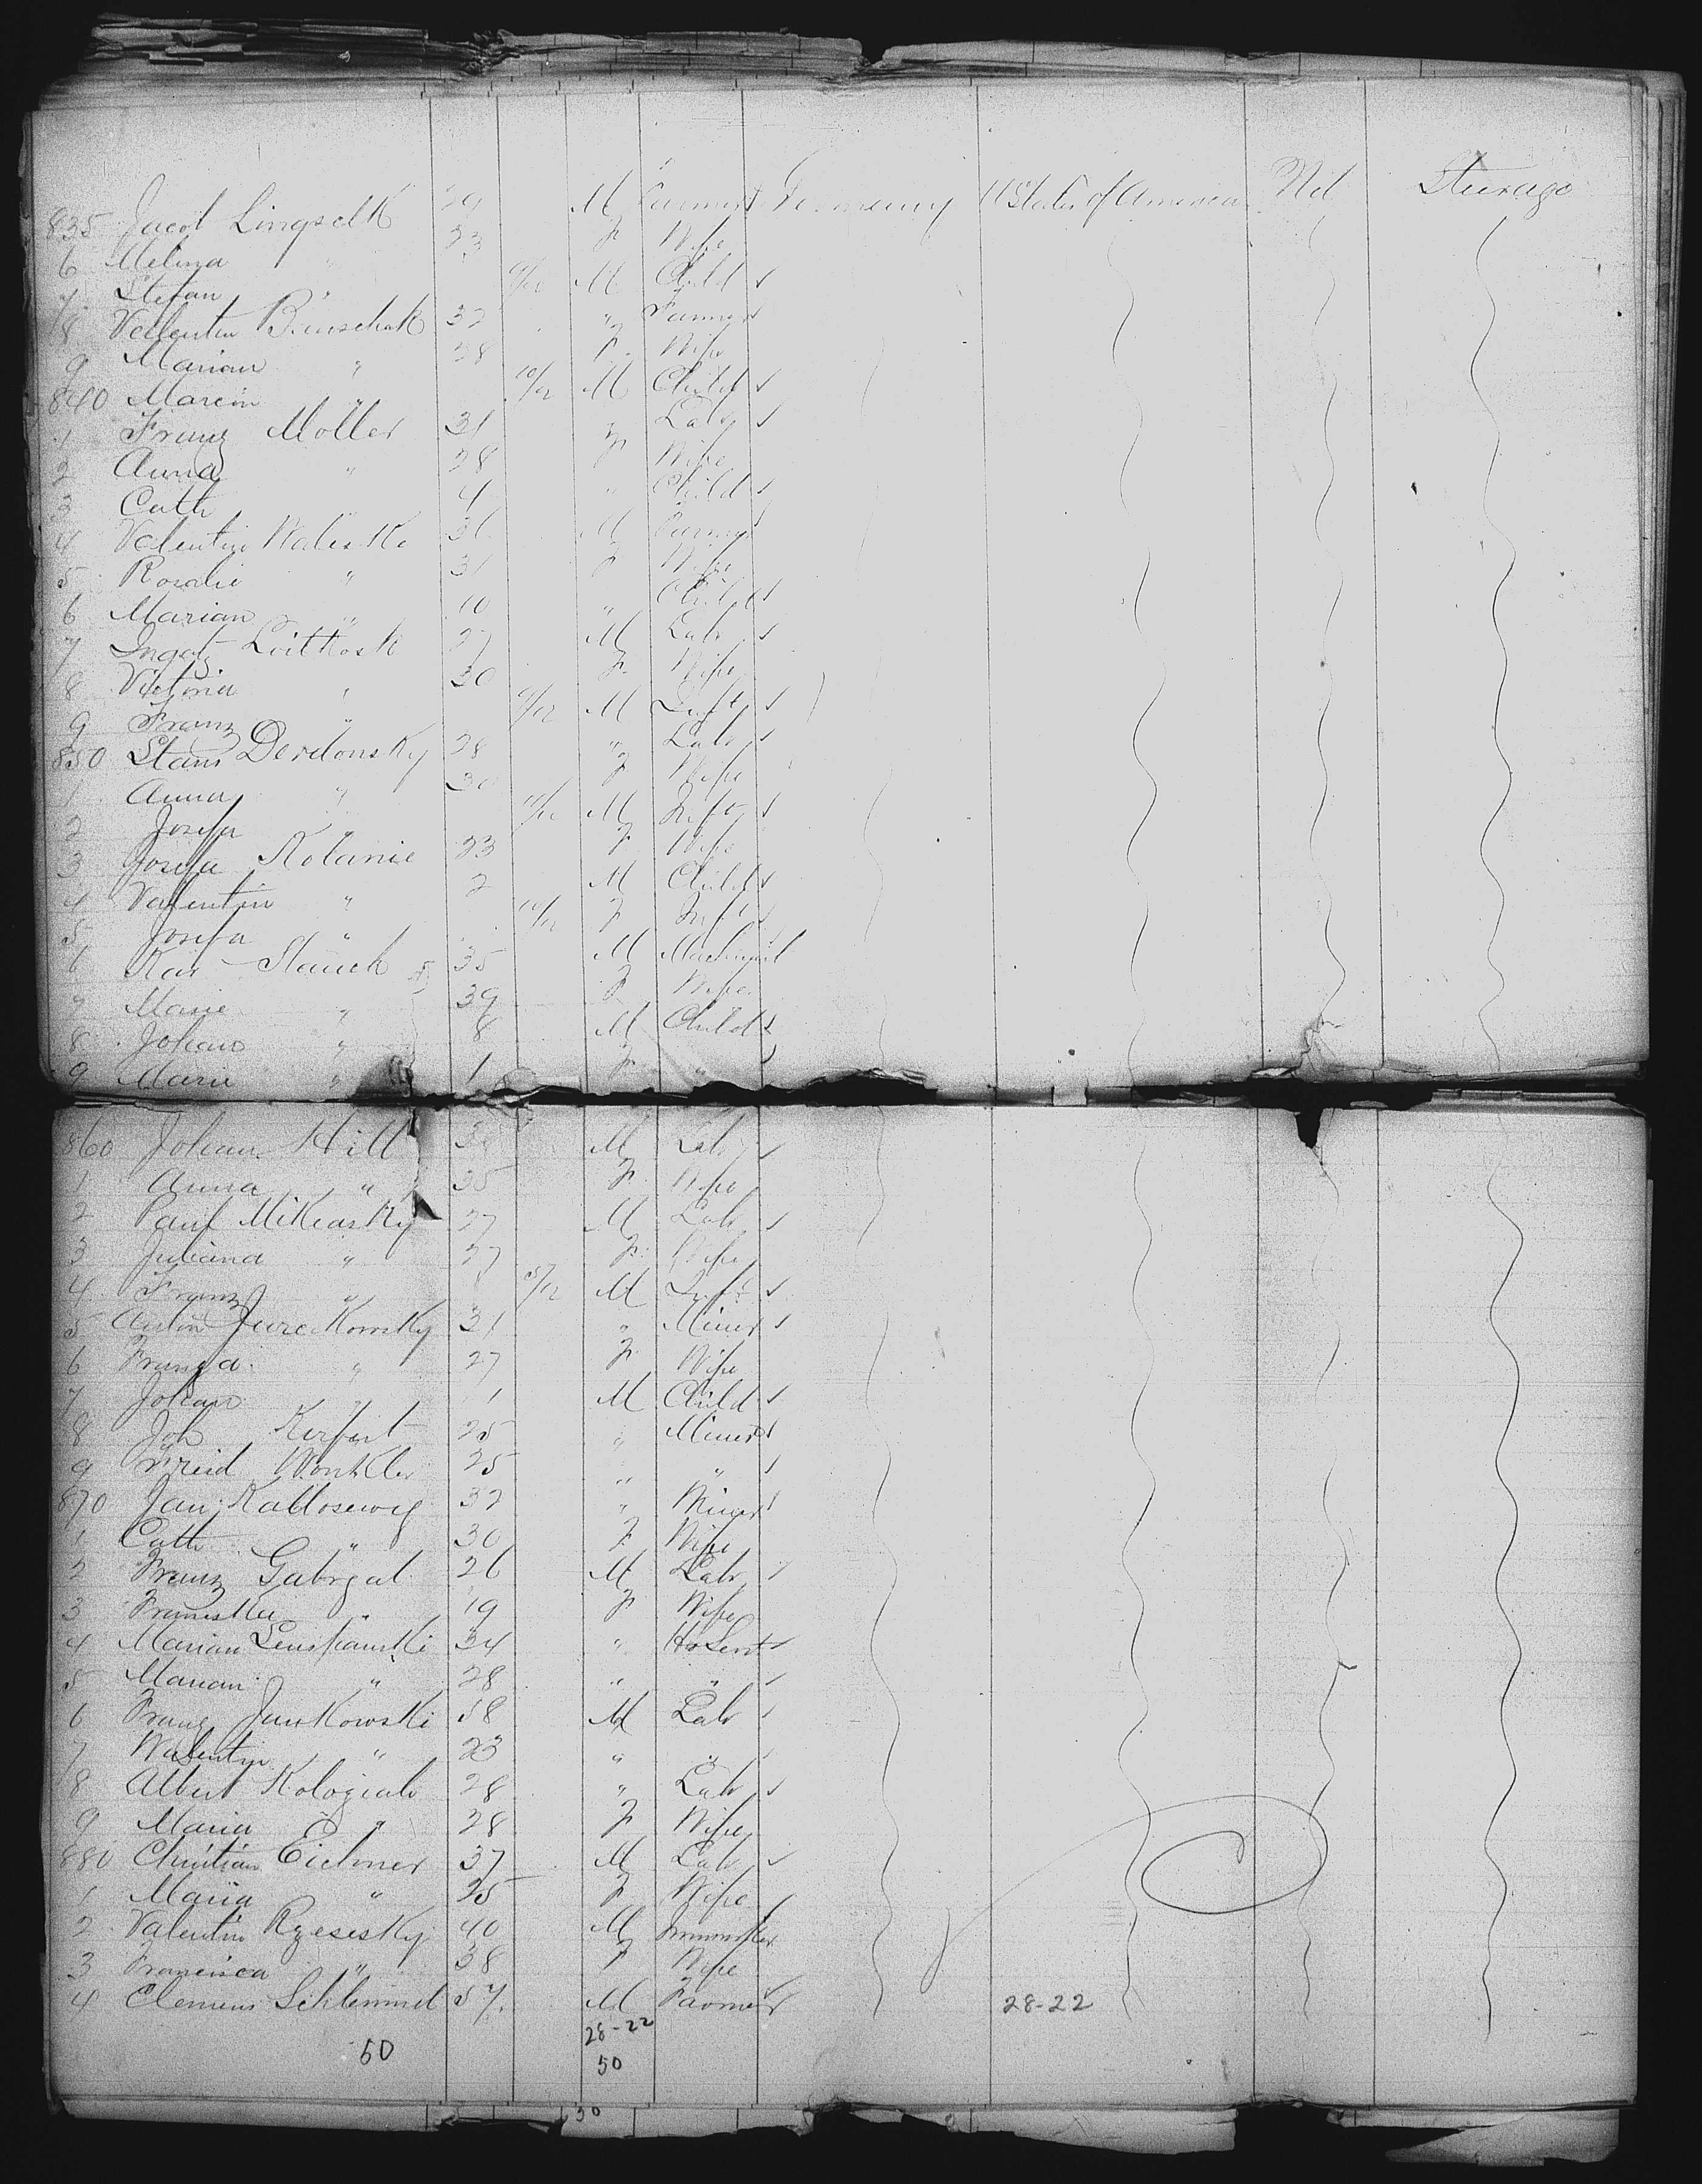 835 Jacob Lingselk 29 M Farmer Germany U States of America Nil Steerage
6 Melina " 23 F Wife
7 Stefan " 9/12 M Child
8 Vallentin 32 " Farmer
9 Marian " 28 F Wife
840 Marcin " 10/12 M Child
1 Franz Moller 31 " Labr
2 Anna " 28 F Wife
3 Cath " 4 " Child
4 Valentin 36 M Farmer
5 Rosalie " 31 F Wife
6 Marian " 10 " Child
7 27 M Labr
8 Victoria " 30 F Wife
9 Franz " 9/12 M Inft
850 Stani Derdonsky 28 " Labr
1 Anna " 30 F Wife
2 Josefa " 11/12 M Inft
3 Josefa Kolanie 23 F Wife
4 Valentin " 2 M Child
5 Josefa " 10/12 F Inft
6 Stauch 35 M Machinist
7 Marie " 39 F Wife
8 Johan " 8 M Child
9 Marie " 1 F "
860 Johan Hill 38 M Labr
1 Anna " 35 F Wife
2 Paul Mikearsky 27 M Labr
3 Juliana " 27 F Wife
4 Franz " 5/12 M Inft
5 Anton Jureckowsky 31 " Miner
6 " 27 F Wife
7 Johan " 1 M Child
8 Joh 25 " Miner
9 Freid Wonkler 25 " "
870 Jan 32 " Miner
1 Cath " 30 F Wife
2 Franz Gabryal 26 M Labr
3 Franiska " 19 F Wife
4 Marian 34 " Ho Servt
5 Marian " 28 " "
6 Franz Jankowski 58 M Labr
7 Walentin " 23 " "
8 Albert Kologiab 28 " Labr
9 Maria " 28 F Wife
880 Christian Eichner 37 M Labr
1 Maria " 25 F Wife
2 Valentin Rzesesky 40 M
3 Francisca " 38 F Wife
4 Clemens Schlemmel 57 M Farmer 28-22
28-22
50 50
30